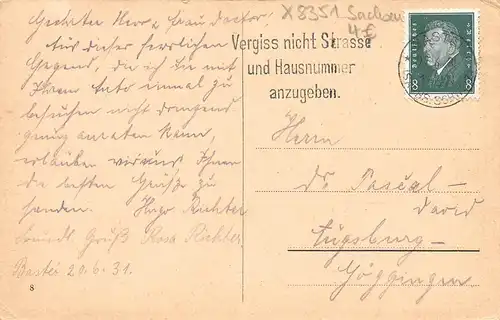 Geehrter Herr u Frau Doctor!
Aus dieser herrlichen
Gegend, die ich Ihnen mit
Ihrem Auto einmal zu
besuchen nicht dringend
genug anraten kann,
erlauben wir uns Ihnen
die besten Grüße zu
senden. Hugo Richter
Freundl. Gruß Rosa Richter
Bastei 20.6.31.
8
X 8351 Sachsen
4€
Vergiss nicht Strasse
und Hausnummer
anzugeben.
8 8
Herrn
Dr. Pascal-
David
Augsburg-
Göggingen